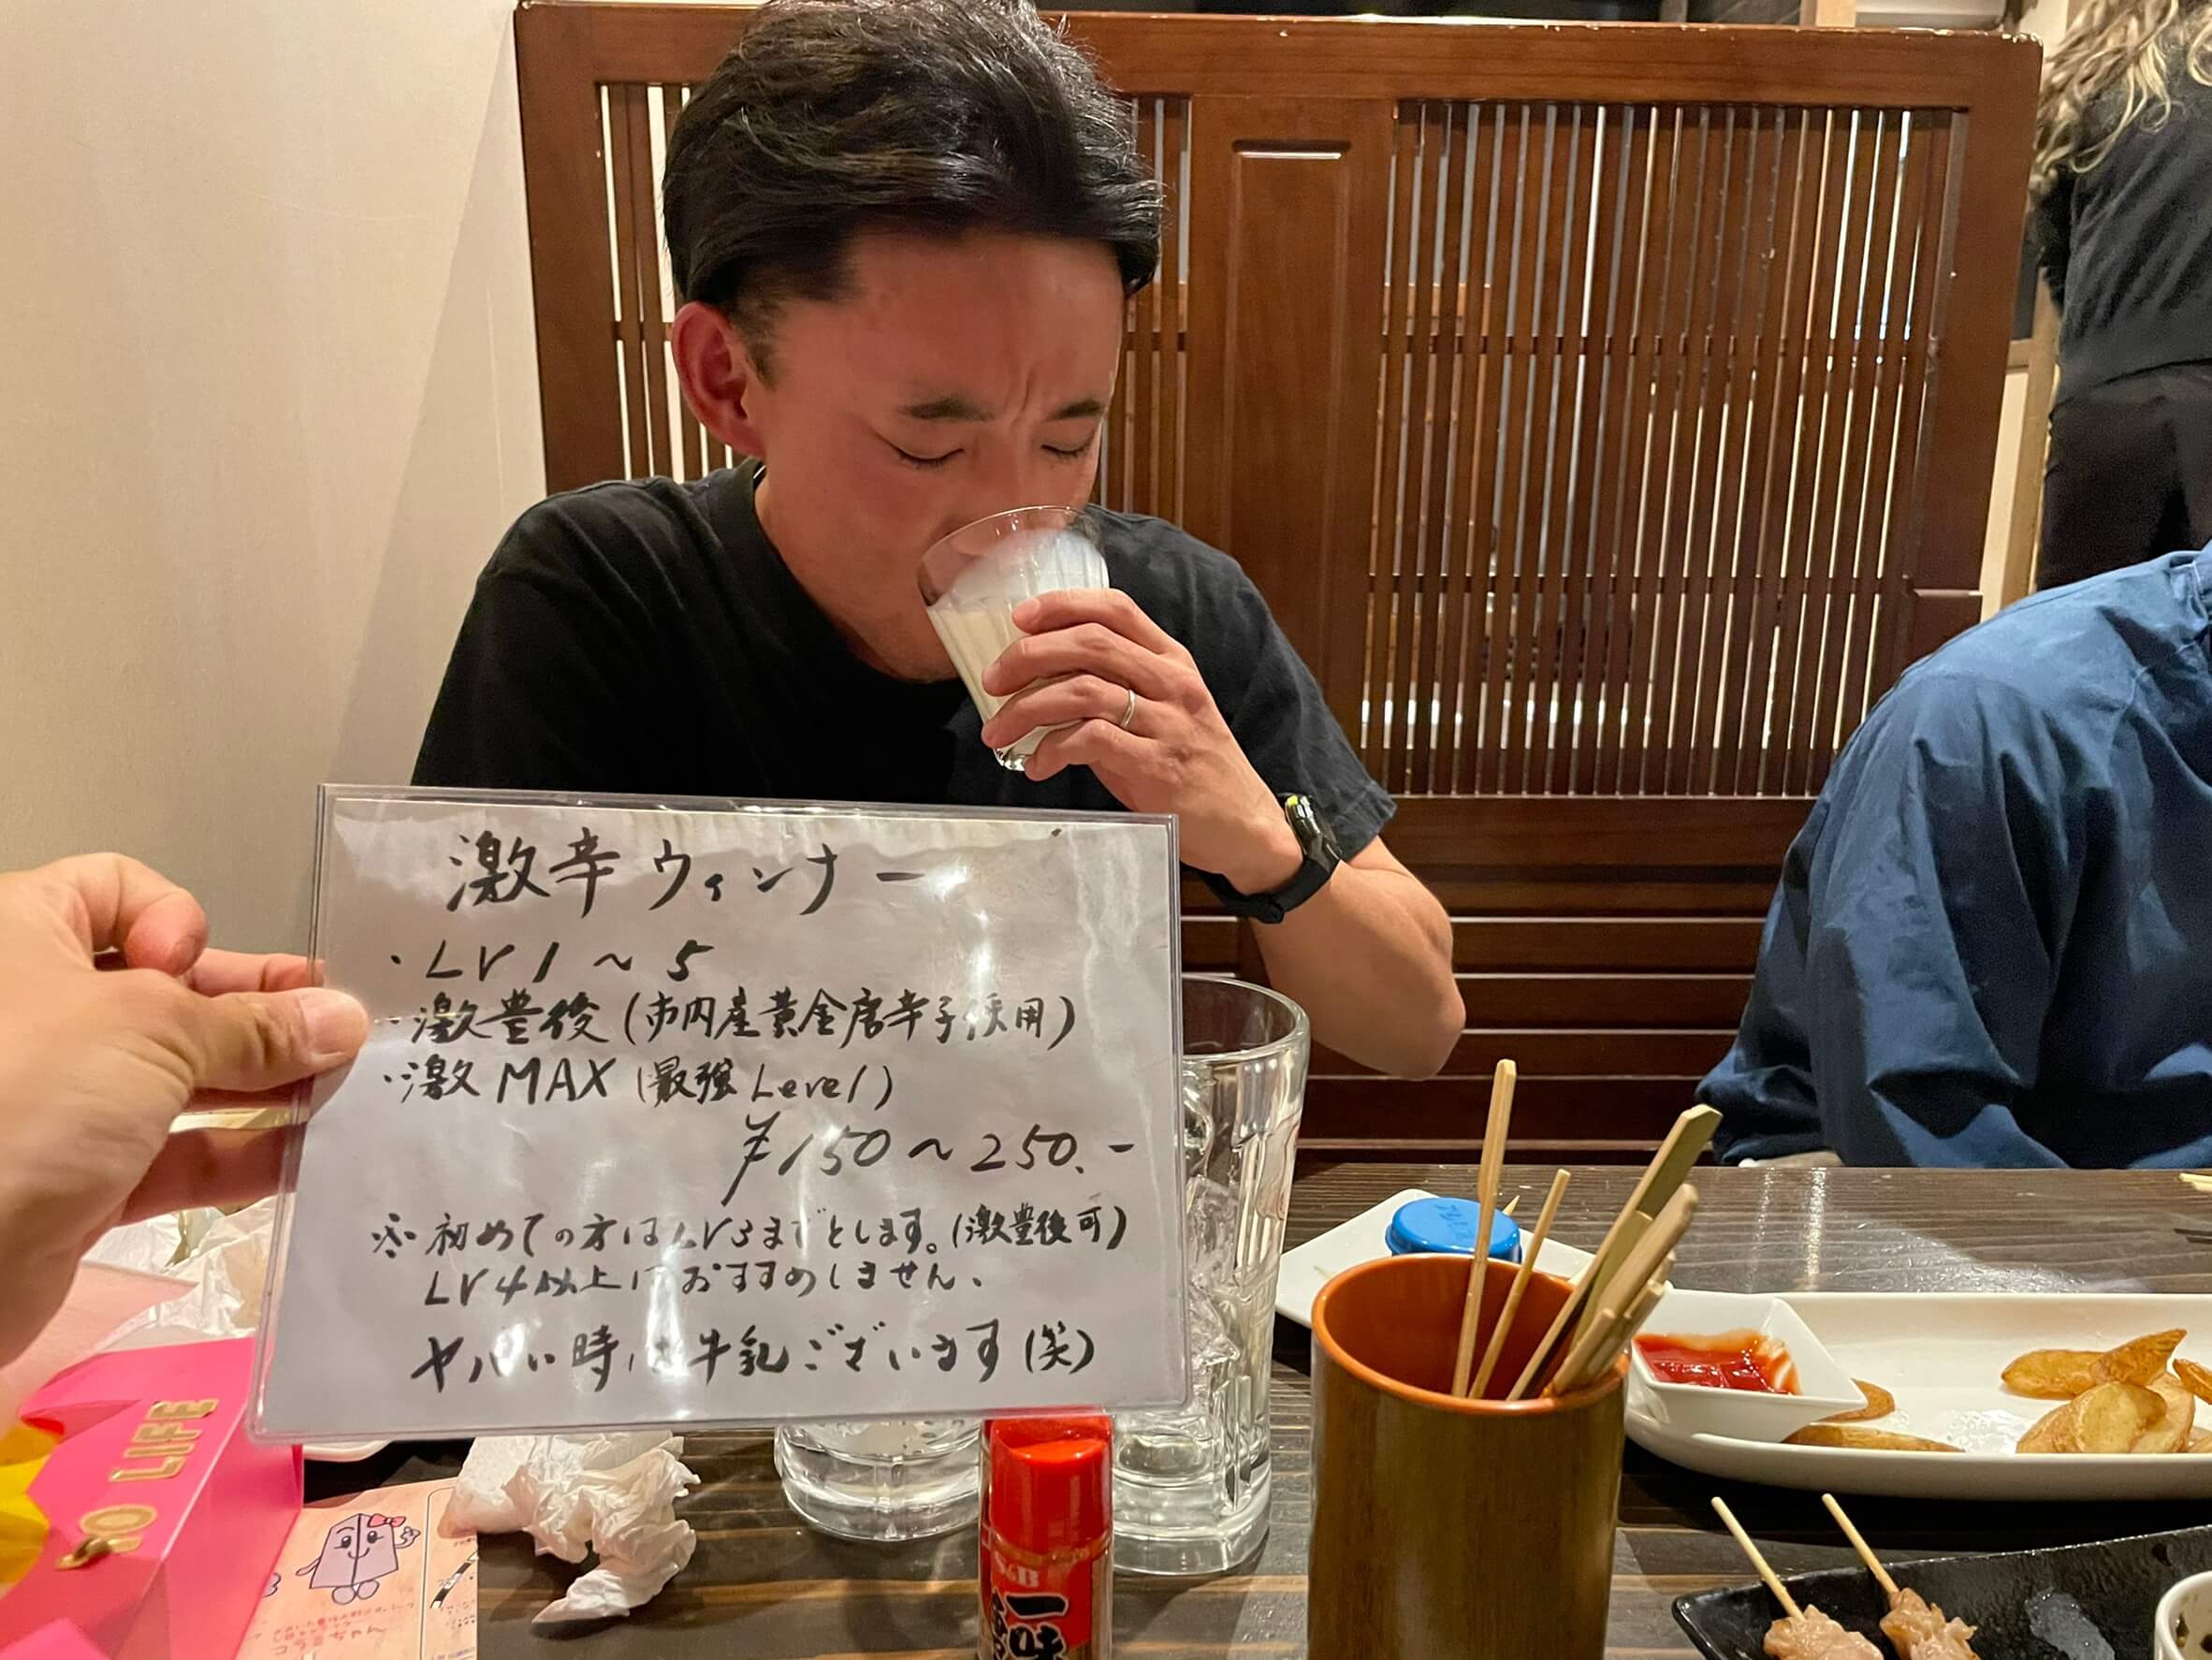 激辛ウィンナー
・LV1～5
・激豊後(市内産黄金唐辛子使用)
・激MAX(最強Level)
¥150～250.-
※初めての方はLV3までとします。(激豊後可)
LV4以上はおすすめしません。
ヤバい時は牛乳ございます(笑)
LIFE
S&B
一味